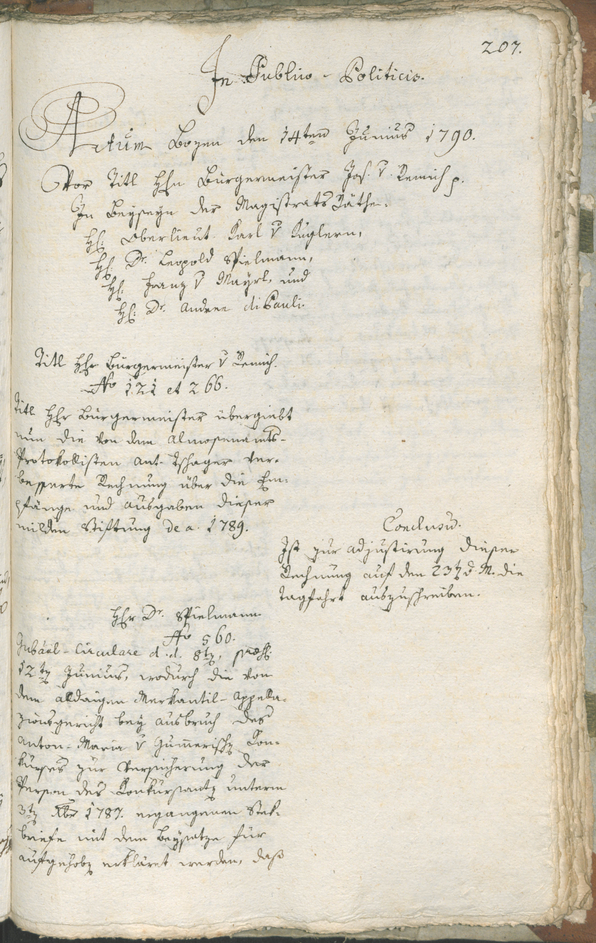 207.
In Publico-Politicis.
Actum Bozen den 14ten Junius 1790.
Vor Titl Hhn Bürgermeister Jos. v Remich p.
In Beyseyn der Magistrats Räthe.
Hh. Oberlieut. Karl v
Hh. Dr. Leopold Spielmann,
Hh. Franz v Mayrl, und
Hh. Dr. Andree di Pauli
Titl Hhr Bürgermeister v Remich.
No 121 et 266.
Titl Hhr Bürgermeister übergiebt
nun die von dem Almosenamts-
Protokollisten Ant. Tschager ver-
besserte Rechnung über die Em-
pfänge und Ausgaben dieser
milden Stiftung de a. 1789.
Conclusu.
Ist zur Adjustirung dieser
Rechnung auf den 23t d. M. die
Tagfahrt auszuschreiben.
Hhr Dr. Spielmann
No 560.
Gubãal-Circulare d. d. 8t,
12t Junius, wodurch die von
dem alldaigen Merkantil-Appella-
zionsgericht bey Ausbruch des
Anton-Maria v Gumerischen Kon-
kurses zur Versicherung der
Person des Konkursants unterm
3t Xber 1787. ergangenen Stek-
briefe mit dem Beysatze für
aufgehobn erkläret werden, daß